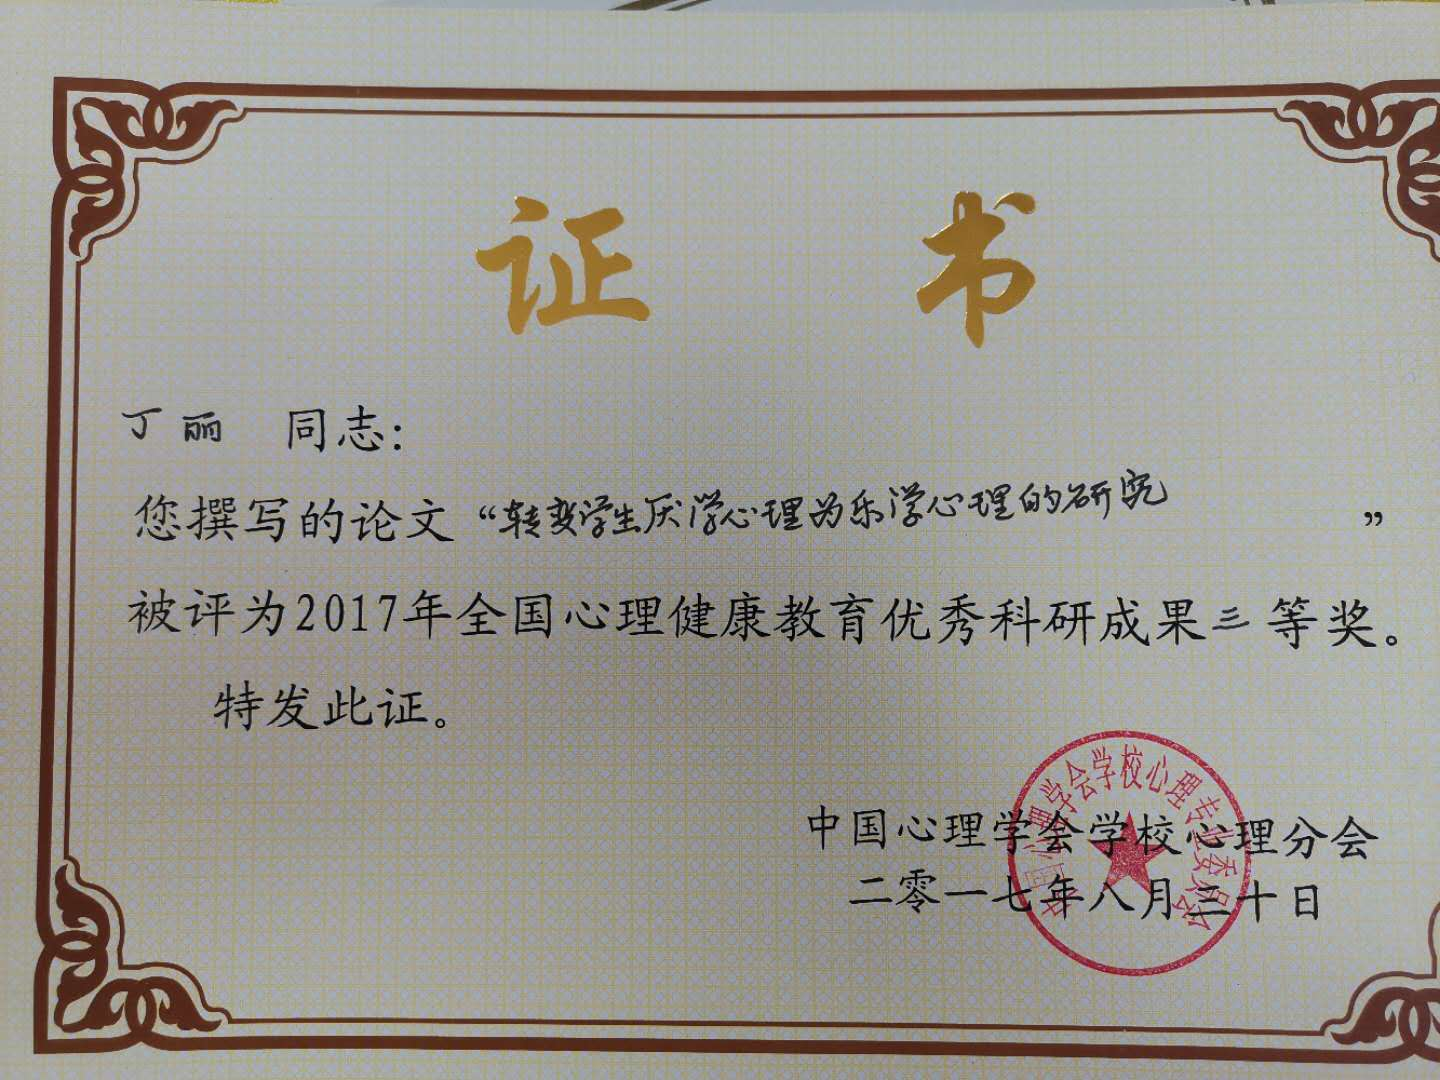 证 书
丁丽 同志：
您撰写的论文“转变学生厌学心理为乐学心理的研究”
被评为2017年全国心理健康教育优秀科研成果三等奖。
特发此证。
中国心理学会学校心理分会
二零一七年八月三十日
中国心理学会学校心理专业委员会